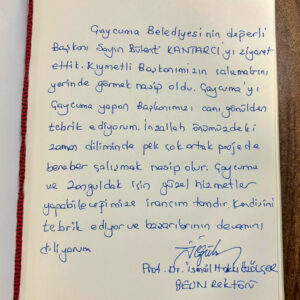 Çaycuma Belediyesi'nin değerli
Başkanı Sayın Bülent KANTARCI'yı ziyaret
ettik. Kıymetli Başkanımızın
yerinde görmek nasip oldu. Çaycuma'yı
Çaycuma yapan Başkanımızı canı gönülden
tebrik ediyorum. İnşallah önümüzdeki
zaman diliminde pek çok ortak projede
beraber çalışmak nasip olur. Çaycuma
ve Zonguldak için güzel hizmetler
yapabileceğimize inancım tamdır. Kendisini
tebrik ediyor ve başarılarının devamını
diliyorum
Prof. Dr. İsmail Hakkı ÖZÖLÇER
BEUN Rektörü